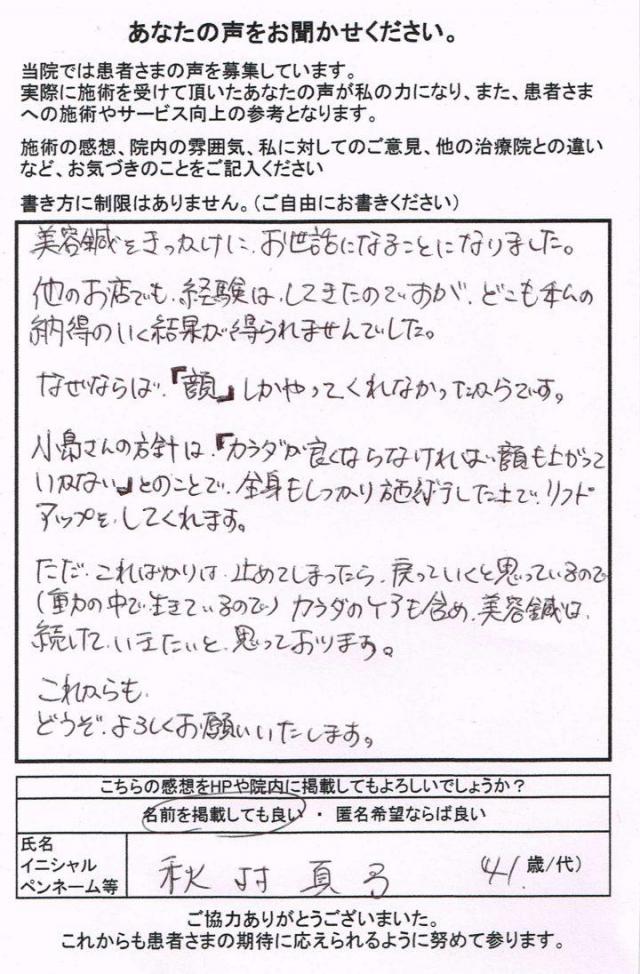 あなたの声をお聞かせください。
当院では患者さまの声を募集しています。
実際に施術を受けて頂いたあなたの声が私の力になり、また、患者さま
への施術やサービス向上の参考となります。
施術の感想、院内の雰囲気、私に対してのご意見、他の治療院との違い
など、お気づきのことをご記入ください
書き方に制限はありません。(ご自由にお書きください)
美容鍼をきっかけに、お世話になることになりました。
他のお店でも、経験は、してきたのですが、どこも本人の
納得のいく結果が得られませんでした。
なぜならば、『顔』しかやってくれなかったからです。
小島さんの方針は、『カラダが良くならなければ、顔も上がって
いかない』とのことで、全身もしっかり施術した上で、リフト
アップを、してくれます。
ただ、こればかりは、止めてしまったら、戻っていくと思っているので
(重力の中で生きているので)カラダのケアも含め、美容鍼は、
続けて、いきたいと、思っております。
これからも、
どうぞ、よろしくお願いいたします。
こちらの感想をHPや院内に掲載してもよろしいでしょうか?
名前を掲載しても良い ・ 匿名希望ならば良い
氏名
イニシャル
ペンネーム等
秋村真 41 歳/代)
ご協力ありがとうございまいた。
これからも患者さまの期待に応えられるように努めて参ります。